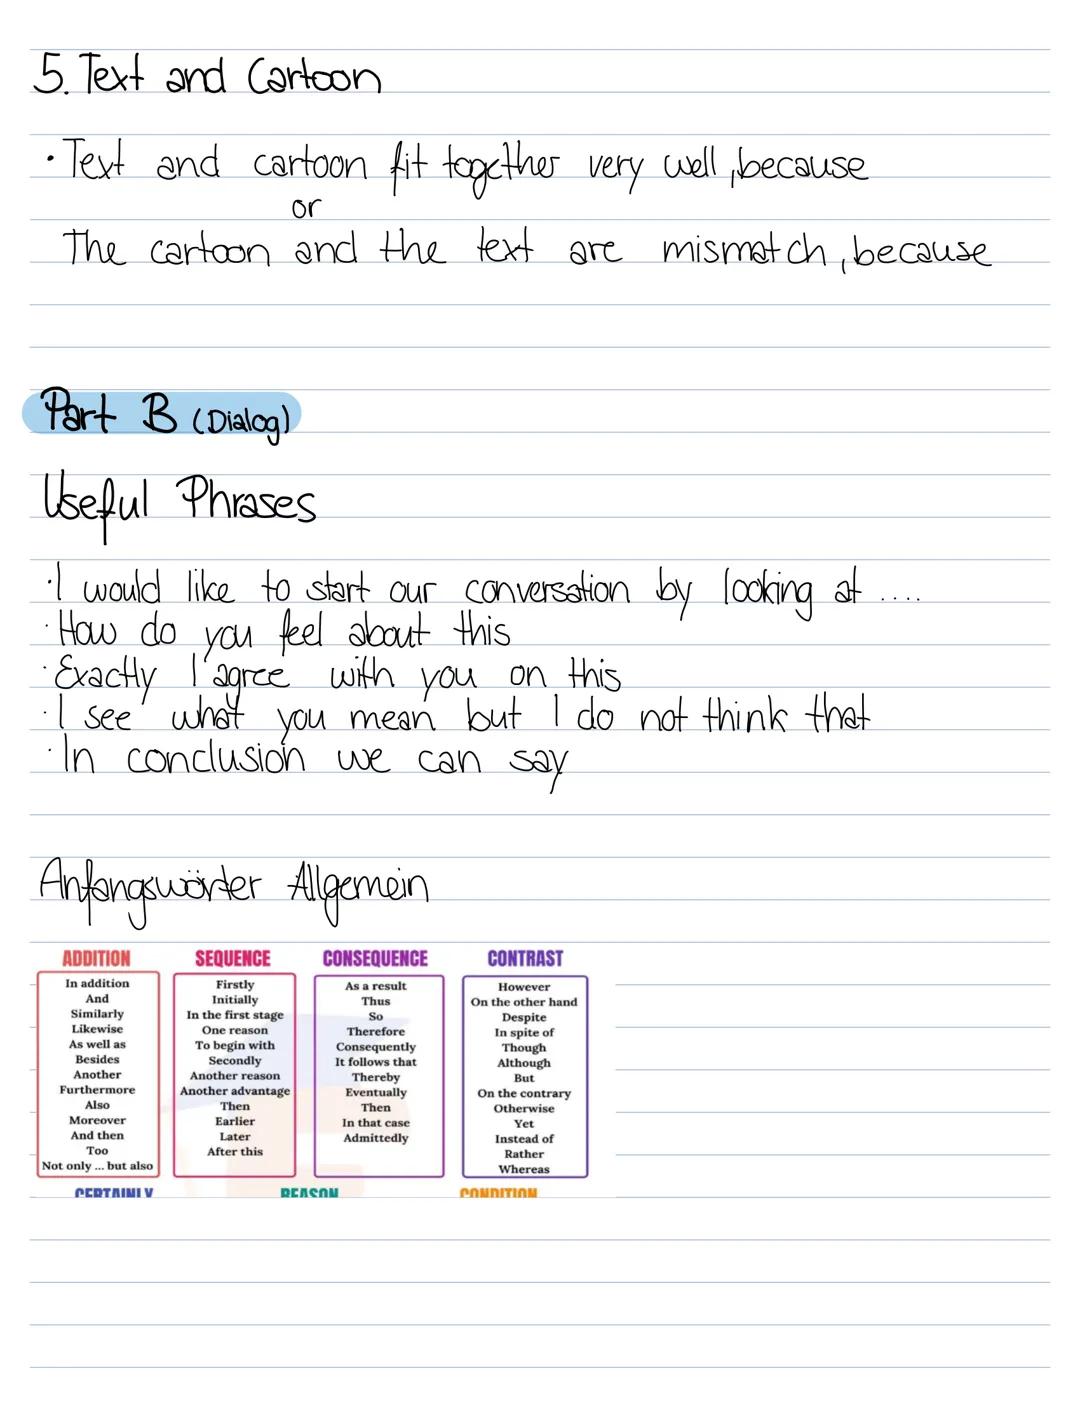 5. Text and Cartoon
· Text and cartoon fit together very well, because
or
The cartoon and the text are mismatch, because
Part B (Dialog)
Useful Phrases
· I would like to start our conversation by looking at ....
· How do you feel about this
· Exactly I agree with you on this
· I see what you mean but I do not think that
· In conclusion we can say
Anfangswörter Allgemein
ADDITION
In addition
And
Similarly
Likewise
As well as
Besides
Another
Furthermore
Also
Moreover
And then
Too
Not only ... but also
SEQUENCE
Firstly
Initially
In the first stage
One reason
To begin with
Secondly
Another reason
Another advantage
Then
Earlier
Later
After this
CONSEQUENCE
As a result
Thus
So
Therefore
Consequently
It follows that
Thereby
Eventually
Then
In that case
Admittedly
CONTRAST
However
On the other hand
Despite
In spite of
Though
Although
But
On the contrary
Otherwise
Yet
Instead of
Rather
Whereas
CERTAINLY
REASON
CONDITION